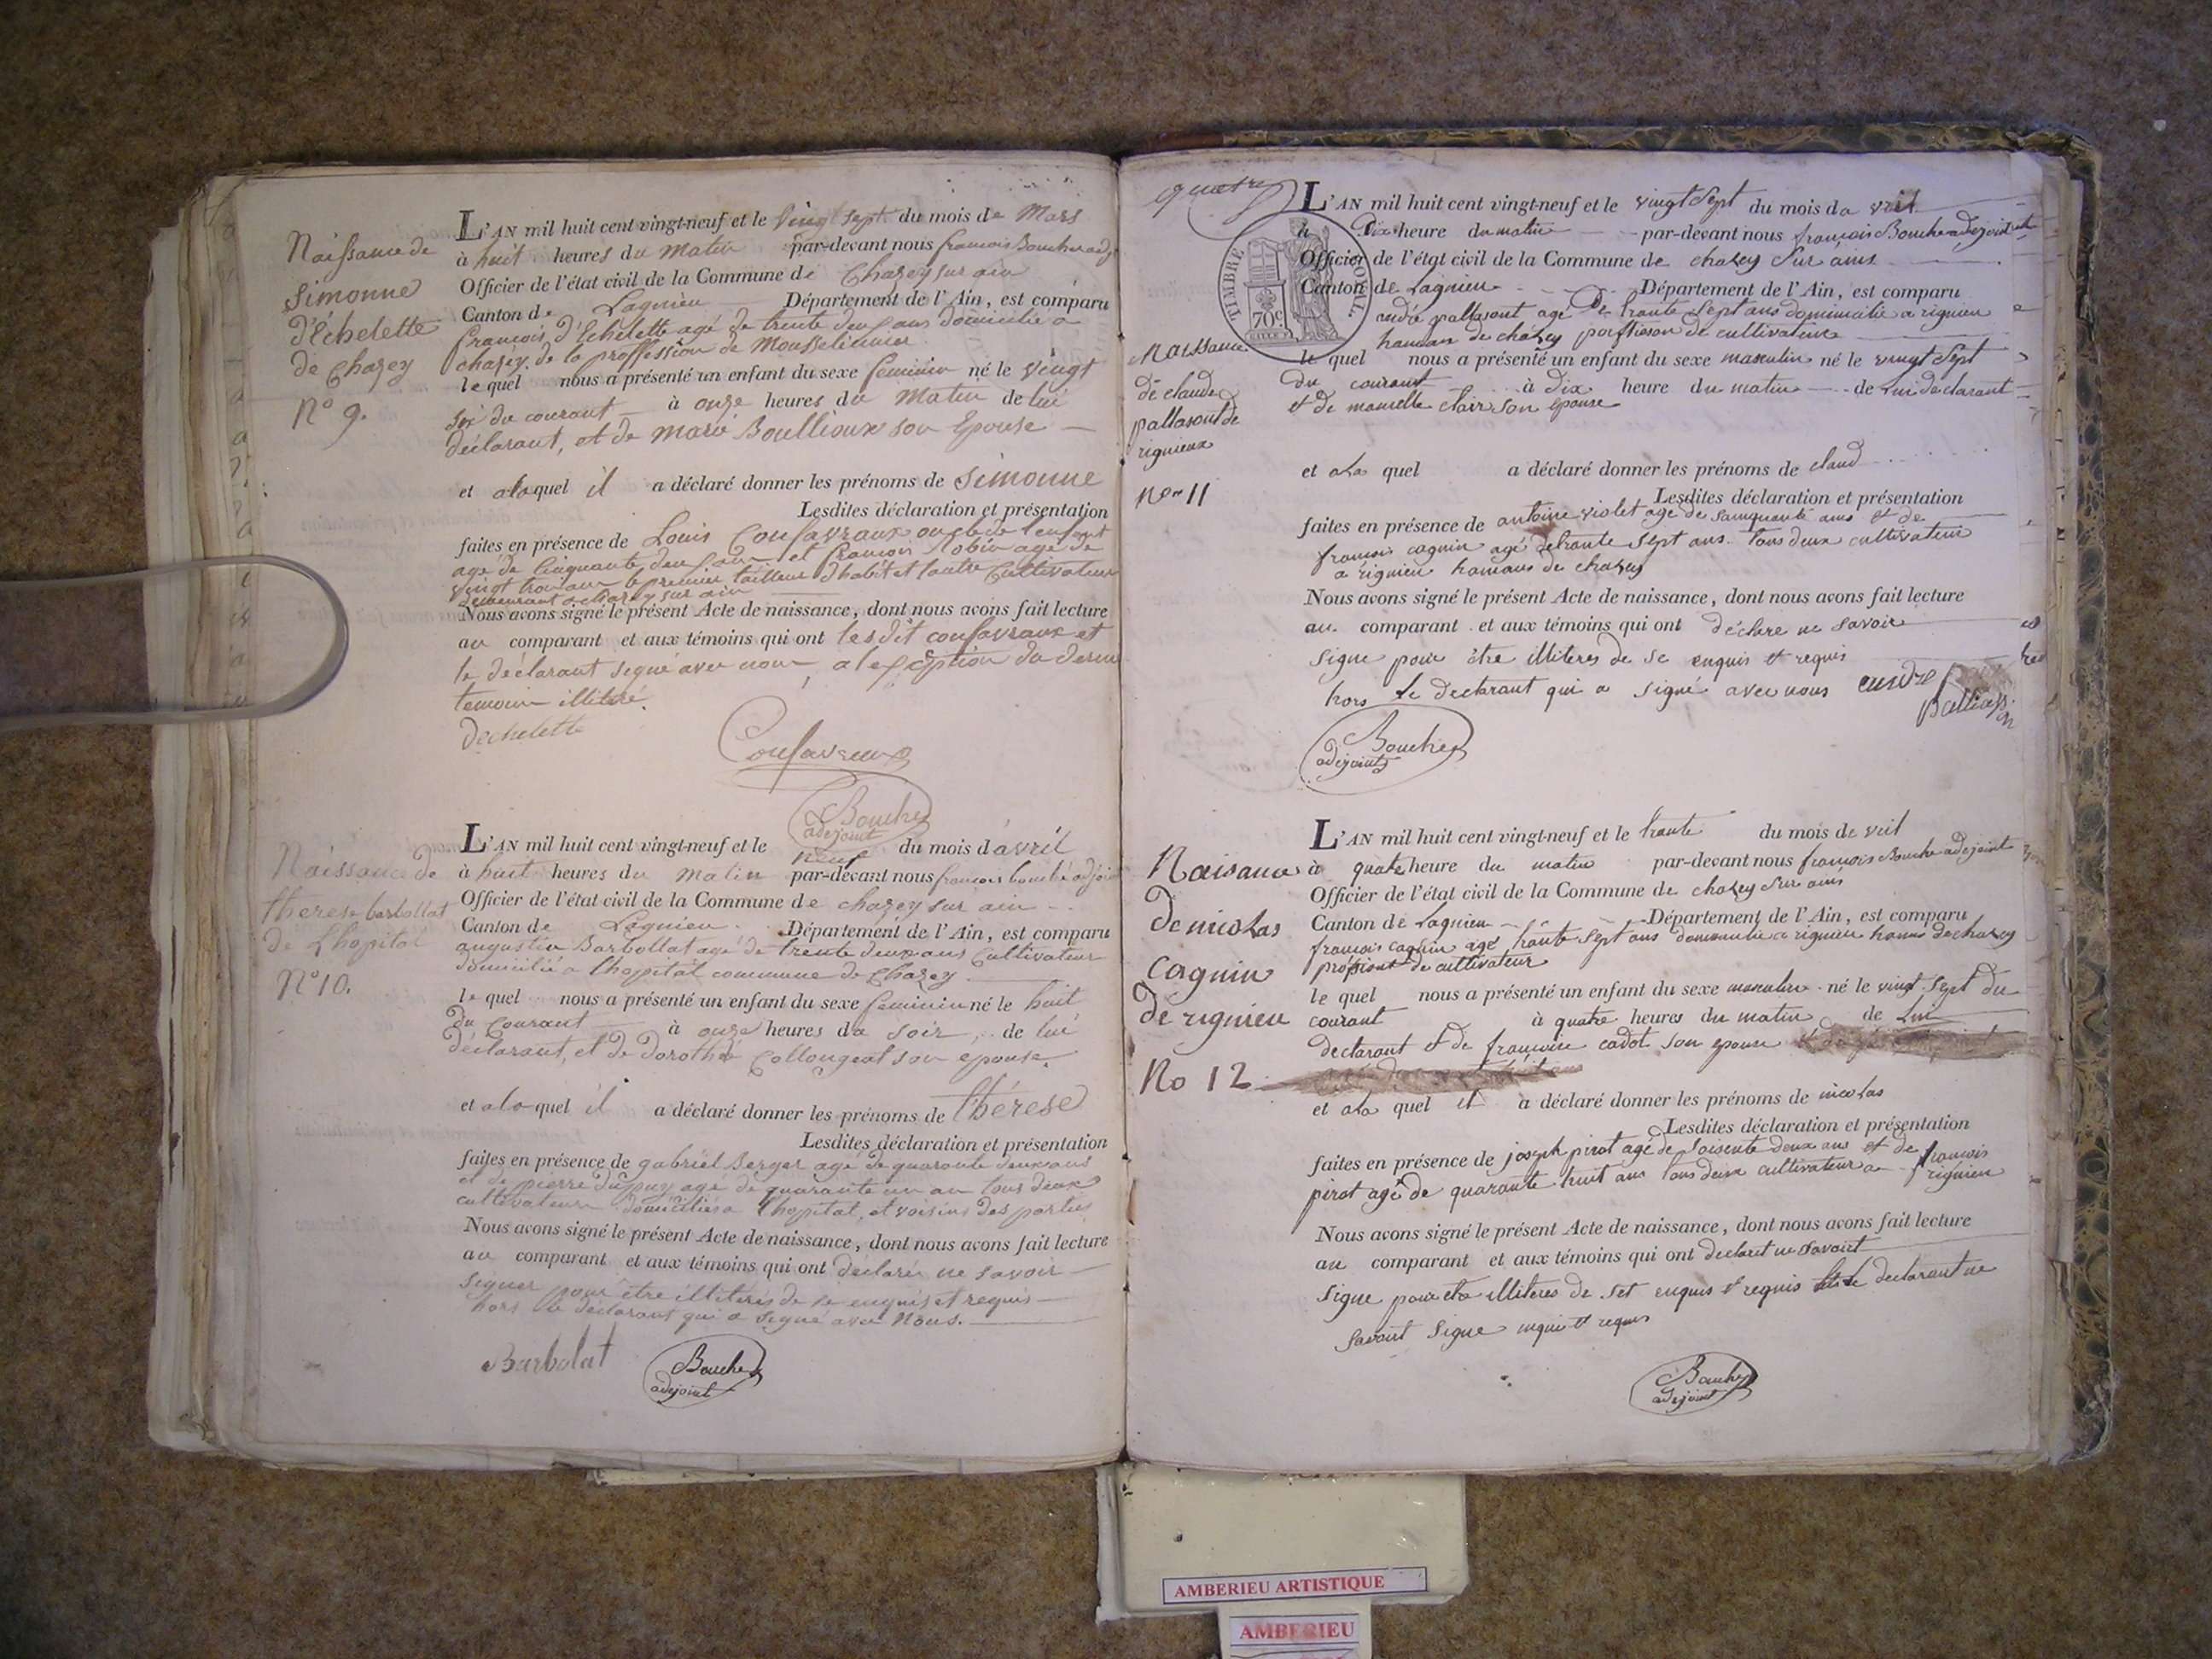 Naissance de
Simonne
d'Echelette
de Chazey
N° 9.
L'AN mil huit cent vingt-neuf et le Vingt sept du mois de Mars
à huit heures du Matin par-devant nous francois Boucher adj
Officier de l'état civil de la Commune de Chazey sur ain
Canton de Lagnieu Département de l'Ain, est comparu
francois d'Echelette agé de trente deux ans domicilié a
chazey de la proffession de Mousselinier
le quel nous a présenté un enfant du sexe feminin né le Vingt
six du courant à onze heures du Matin de lui
déclarant, et de marie Boullioux son Epouse
et alaquel il a déclaré donner les prénoms de Simonne
Lesdites déclaration et présentation
faites en présence de Louis Confavraux oncle de l'enfant
agé de Cinquante deux ans et francois robin agé de
vingt trois ans le premier tailleur d'habit et l'autre Cultivateur
demeurant a chazey sur ain
Nous avons signé le présent Acte de naissance, dont nous avons fait lecture
au comparant et aux témoins qui ont lesdit confavraux et
le déclarant signé avec nous, a lexception du dernier
temoin illiteré.
Dechelette
Confavreux
Bouche
adejoint
Naissance de
therese barbollat
de Lhopital
N° 10.
L'AN mil huit cent vingt-neuf et le neuf du mois d'avril
à huit heures du Matin par-devant nous francois bouché adjoi
Officier de l'état civil de la Commune de chazey sur ain
Canton de Lagnieu Département de l'Ain, est comparu
augustin Barbollat agé de trente deux ans Cultivateur
domicilié a lhopital commune de Chazey
le quel nous a présenté un enfant du sexe feminin né le huit
du Courant à onze heures du soir, de lui
déclarant, et de Dorothé Collongeat son epouse.
et ala quel il a déclaré donner les prénoms de thérese
Lesdites déclaration et présentation
faites en présence de gabriel Berger agé de quarante deux ans
et de pierre dupuy agé de quarante un an tous deux
cultivateur domiciliés a lhopital, et voisins des parties
Nous avons signé le présent Acte de naissance, dont nous avons fait lecture
au comparant et aux témoins qui ont declarés ne savoir
signer pour être illiterés de se enquis et requis
hors le déclarant qui a signé avec Nous.
Barbolat
Bouche
adejoint
quatre
TIMBRE ROYAL
70c.
Naissance
de claude
pallasont de
rignieux
No 11
L'AN mil huit cent vingt-neuf et le vingt Sept du mois da vril
à Dix heure du matin par-devant nous francois Bouche adejoint
Officier de l'état civil de la Commune de chazey Sur ains
Canton de Lagnieu Département de l'Ain, est comparu
andré pallasont agé De trante Sept ans domincilié a rignieu
hamau de chazey proffision de cultivateur
le quel nous a présenté un enfant du sexe masculin né le vingt Sept
du courant à Dix heure du matin de Lui declarant
et de mamelle clair son epouse
et ala quel a déclaré donner les prénoms de claud
Lesdites déclaration et présentation
faites en présence de antoine violet agé de sainquante ans et de
francois cagnin agé detrante Sept ans tous deux cultivateur
a rignieu hamaus de chazey
Nous avons signé le présent Acte de naissance, dont nous avons fait lecture
au comparant et aux témoins qui ont déclare ne Savoir
Signe pour être illiteres de se enquis et requis
hors Le declarant qui a signé avec nous andre
Bouche
adejoint
Naisance
De nicolas
Cagnin
De rignieu
No 12
L'AN mil huit cent vingt-neuf et le trante du mois de vril
à quatre heure du matin par-devant nous francois Bouche adejoint
Officier de l'état civil de la Commune de chazey Sur ains
Canton de Lagnieu Département de l'Ain, est comparu
francois cagnin agé trante Sept ans domincilie a rignieu hamau de chazey
de cultivateur
le quel nous a présenté un enfant du sexe masculin né le vingt Sept du
courant à quatre heures du matin de Lui
declarant et de francoise cadot son epouse
et ala quel il a déclaré donner les prénoms de nicolas
Lesdites déclaration et présentation
faites en présence de joseph pirot agé de Soisente deux ans et de francois
pirot agé de quarante huit ans tous deux cultivateur a rignieu
Nous avons signé le présent Acte de naissance, dont nous avons fait lecture
au comparant et aux témoins qui ont declaret ne Savoirt
Signe pour etre illiteres de set enquis et requis le declarant ne
Savoirt Signe enquis et requis
Bouche
adejoint
AMBERIEU ARTISTIQUE
AMBERIEU